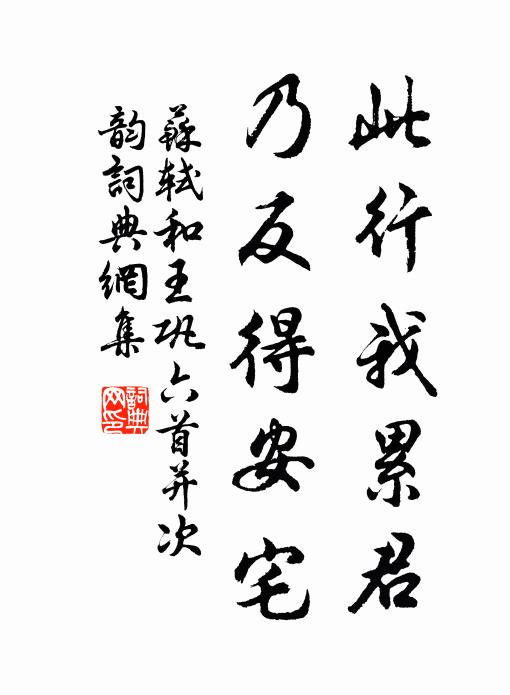 此行我累君
乃反得安宅
蘇軾和王巩六首并次
韵詞典網集
詞典
网印